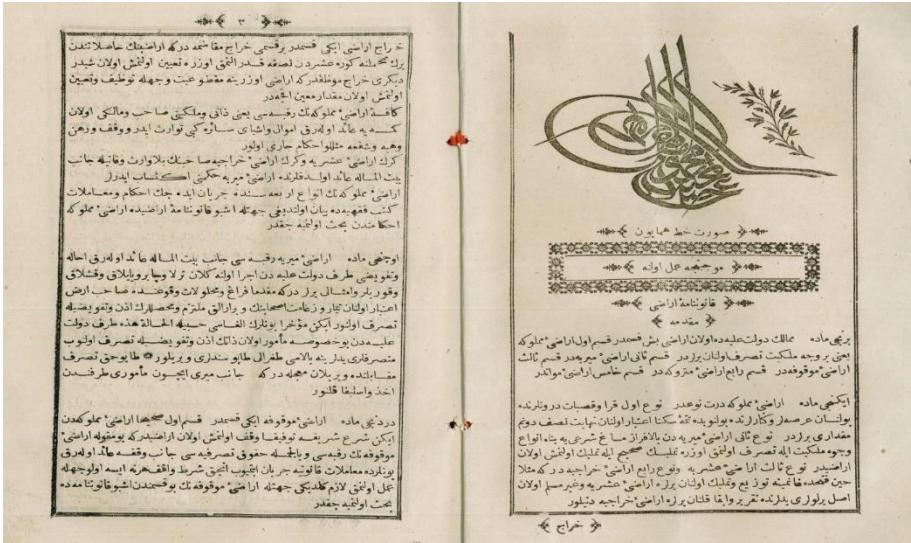 صورت خط همايون
موجبنجه عمل اولنه
قانوننامهٔ اراضى
مقدمه
برنجى ماده ممالك دولت عليه‌ده اولان اراضى بش قسمدر قسم اول اراضئ مملوكه
يعنى بر وجه ملكيت تصرف اولنان يرلردر قسم ثانى اراضئ ميريه‌در قسم ثالث
اراضئ موقوفه‌در قسم رابع اراضئ متروكه‌در قسم خامس اراضئ مواتدر
ايكنجى ماده اراضئ مملوكه درت نوعدر نوع اول قرا و قصبات درونلرنده
بولنان عرصه‌لر و كنارلرنده بولنوب ده تتمهٔ سكنا اعتبار اولنان نهايت نصف دونم
مقدارى يرلردر نوع ثانى اراضئ ميريه دن بالافراز مساغ شرعى يه بناء انواع
وجوه ملكيت ايله تصرف اولنمق اوزره تمليك صحيح ايله تمليك اولنمش اولان
اراضيدر نوع ثالث اراضئ عشريه و نوع رابع اراضئ خراجيه در كه مثلا
حين فتحده غانمينه توزيع و تمليك اولنان يرلره اراضئ عشريه و غير مسلم اولان
اصل يرلولرى يدلرنده تقرير و ابقا قلنان يرلره اراضئ خراجيه دنيلور
خراج
٣
خراج اراضى ايكى قسمدر بر قسمى خراج مقاسمه در كه اراضينك حاصلاتندن
يرك تحملنه كوره عشردن نصفه قدر النمق اوزره تعيين اولنمش اولان شيدر
ديكرى خراج موظفدر كه اراضى اوزرينه مقطوعيت وجهله توظيف و تعيين
اولنمش اولان مقدار معين اقچه‌در
كافهٔ اراضئ مملوكه‌نك رقبه‌سى يعنى ذاتى و ملكيتى صاحب و مالكى اولان
كسه يه عائد اوله‌رق اموال و اشياى سائره كبى توارث ايدر و وقف و رهن
وهبه و شفعه مثللو احكام جارى اولور
كرك اراضئ عشريه و كرك اراضئ خراجيه صاحبنك بلاوارث وفاتيله جانب
بيت المـاله عائد اولدقلرنده اراضئ ميريه حكمنى اكتساب ايدرلر
اراضئ مملوكه‌نك انواع اربعه‌سنده جريان ايده جك احكام و معـاملات
كتب فقهيه‌ده بيان اولنديغى جهتله اشبو قانوننامهٔ اراضيده اراضئ مملوكه
احكامندن بحث اولنميه جقدر
اوچنجى ماده اراضئ ميريه رقبه سى جانب بيت المـاله عائد اوله‌رق احاله
و تفويضى طرف دولت عليه دن اجرا اولنه كلان ترلا و چاير و يايلاق و قشلاق
و قوريلر و امثـالى يرلر در كه مقدما فراغ و محلولات وقوعنـده صاحب ارض
اعتبار اولنان تيمار و زعامت اصحابنك و برارالق ملتزم و محصللرك اذن و تفويضيله
تصرف اولنور ايكن مؤخرا بونلرك الغاسى حسبيله الحـالة هذه طرف دولت
عليـه‌دن بو خصوصـه مأمور اولان ذاتك اذن و تفويضيـله تصرف اولنوب
متصرفلرى يدلرينه بالاسى طغرالى طاپو سندلرى ويريلور طاپو حق تصرف
مقـابلنده ويريلان معجله در كه جانب ميرى ايچـون مأمورى طرفنـدن
اخذ و استيفا قلنور
دردنجى ماده اراضئ موقوفه ايكى قسمدر قسم اول صحيحا اراضئ مملوكه‌دن
ايكن شرع شريفـه توفيقا وقف اولنمش اولان اراضيدر كه بومقوله اراضئ
موقوفه نك رقبه‌سى و بالجملـه حقوق تصرفيه سى جانب وقفـه عائد اوله‌رق
بونلرده معاملات قانونيه جريان ايتميوب انجق شرط واقف هرنه ايسه اولوجهله
عمل اولنمق لازم كلديكى جهتله اراضئ موقوفه نك بو قسمندن اشبو قانوننامه ده
بحث اولنميه جقدر